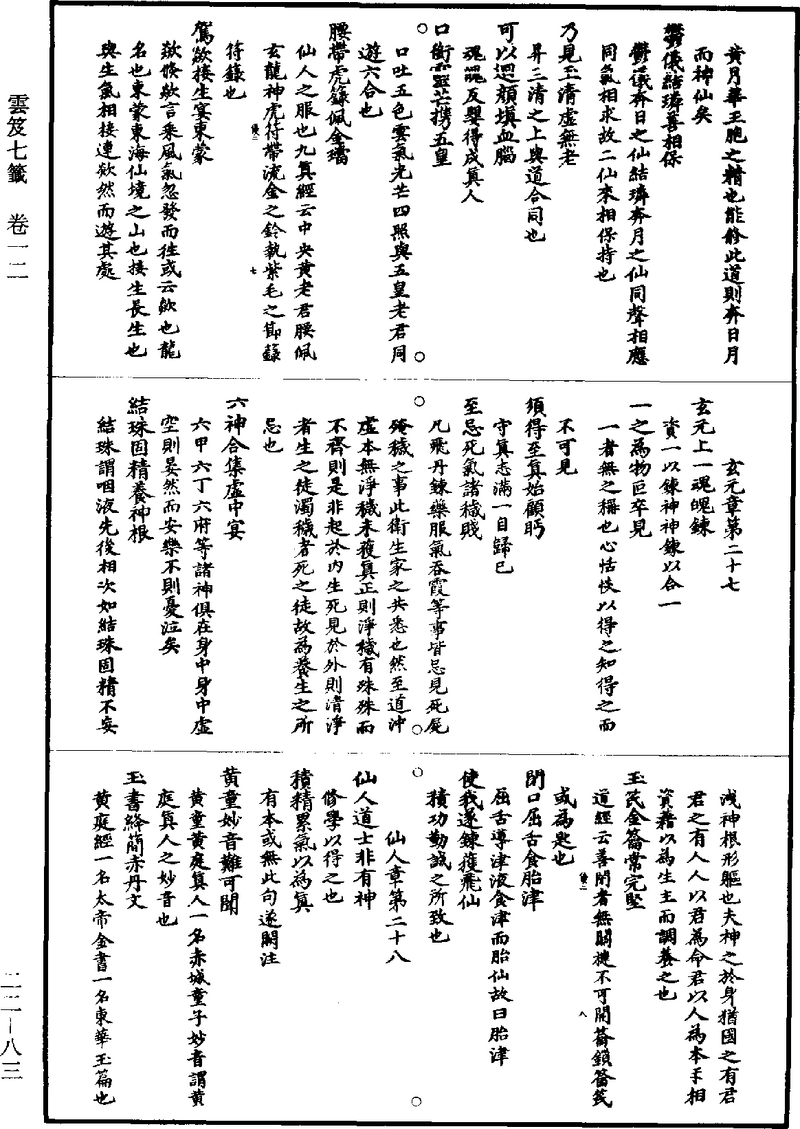 黃月華玉胞之精也能修此道則奔日月
而神仙矣
鬱儀結璘善相保
鬱儀奔日之仙結璘奔月之仙同聲相應
同氣相求故二仙來相保持也
乃見玉清虛無老
昇三清之上與道合同也
可以迴顏填血腦
魂魄反嬰得成眞人
口銜靈芒攜五皇
口吐五色雲氣光芒四照與五皇老君同
遊六合也
腰帶虎籙佩金璫
仙人之服也九眞經云中央黃老君腰佩
玄龍神虎符帶流金之鈴執紫毛之節籙
符籙也
駕欻接生宴東蒙
欻倏欻言乘風氣忽發而往或云欻也龍
名也東蒙東海仙境之山也接生長生也
與生氣相接連欻然而遊其處
玄元章第二十七
玄元上一魂魄鍊
資一以鍊神神鍊以合一
一之為物叵卒見
一者無之稱也心恬惔以得之知得之而
不可見
須得至眞始顧眄
守眞志滿一自歸已
至忌死氣諸穢賤
凡飛丹鍊藥服氣吞霞等事皆忌見死屍
殗穢之事此衛生家之共悉也然至道沖
虛本無淨穢未獲眞正則淨穢有殊殊而
不齊則是非起於內生死見於外則清淨
者生之徒濁穢者死之徒故為養生之所
忌也
六神合集虛中宴
六甲六丁六府等諸神俱在身中身中虛
空則晏然而安樂不則憂泣矣
結珠固精養神根
結珠謂咽液先後相次如結珠固精不妄
洩神根形軀也夫神之於身猶國之有君
君之有人人以君為命君以人為本乎相
資藉以為生主而調養之也
玉䇲金籥常完堅
道經云善閉者無關楗不可開籥鎖籥䇲
或為匙也
閉口屈舌食胎津
屈舌導津液食津而胎仙故曰胎津
使我遂鍊獲飛仙
積功勤誠之所致也
仙人章第二十八
仙人道士非有神
修學以得之也
積精累氣以為眞
有本或無此句遂闕注
黃童妙音難可聞
黃童黃庭眞人一名赤城童子妙音謂黃
庭眞人之妙音也
玉書絳簡赤丹文
黃庭經一名太帝金書一名東華玉篇也
雲笈七籤 卷一二
二二—八三